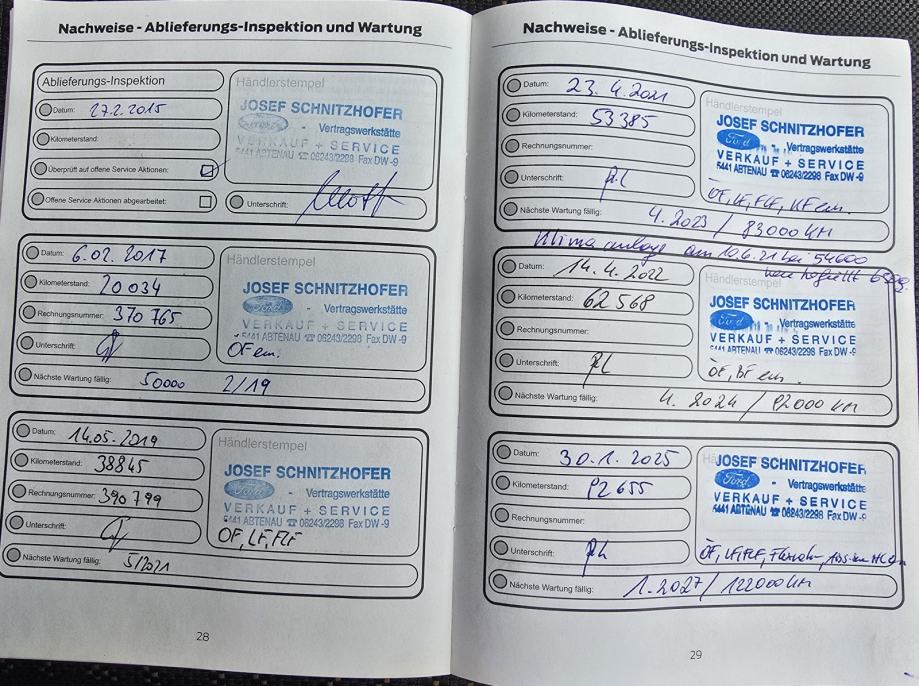 Nachweise - Ablieferungs-Inspektion und Wartung
Ablieferungs-Inspektion
Datum: 27.2.2015
Kilometerstand:
Überprüft auf offene Service Aktionen:
Offene Service Aktionen abgearbeitet:
Händlerstempel
JOSEF SCHNITZHOFER
Ford - Vertragswerkstätte
VERKAUF + SERVICE
5441 ABTENAU ☎ 06243/2298 Fax DW -9
Unterschrift:
Datum: 6.02.2017
Kilometerstand: 20034
Rechnungsnummer: 370765
Unterschrift:
Händlerstempel
JOSEF SCHNITZHOFER
Ford - Vertragswerkstätte
VERKAUF + SERVICE
5441 ABTENAU ☎ 06243/2298 Fax DW -9
ÖF en.
Nächste Wartung fällig: 50000 2/19
Datum: 14.05.2019
Kilometerstand: 38845
Rechnungsnummer: 390799
Unterschrift:
Händlerstempel
JOSEF SCHNITZHOFER
Ford - Vertragswerkstätte
VERKAUF + SERVICE
5441 ABTENAU ☎ 06243/2298 Fax DW -9
ÖF, LF, FLF
Nächste Wartung fällig: 5/2021
28
Nachweise - Ablieferungs-Inspektion und Wartung
Datum: 23.4.2021
Kilometerstand: 53385
Rechnungsnummer:
Unterschrift:
Händlerstempel
JOSEF SCHNITZHOFER
Ford Vertragswerkstätte
VERKAUF + SERVICE
5441 ABTENAU ☎ 06243/2298 Fax DW -9
ÖF, LF, FLF, KF en.
Nächste Wartung fällig: 4.2023 / 83000 KM
Klimaanlage am 10.6.21 bei 54600
Datum: 14.4.2022
Kilometerstand: 62568
Rechnungsnummer:
Unterschrift:
JOSEF SCHNITZHOFER
Ford Vertragswerkstätte
VERKAUF + SERVICE
5441 ABTENAU ☎ 06243/2298 Fax DW -9
ÖF, BF en.
Nächste Wartung fällig: 4.2024 / 92000 KM
Datum: 30.1.2025
Kilometerstand: 92655
Rechnungsnummer:
Unterschrift:
JOSEF SCHNITZHOFER
Ford - Vertragswerkstätte
VERKAUF + SERVICE
5441 ABTENAU ☎ 06243/2298 Fax DW -9
ÖF, LF, FLF,
Nächste Wartung fällig: 1.2027 / 122000 KM
29